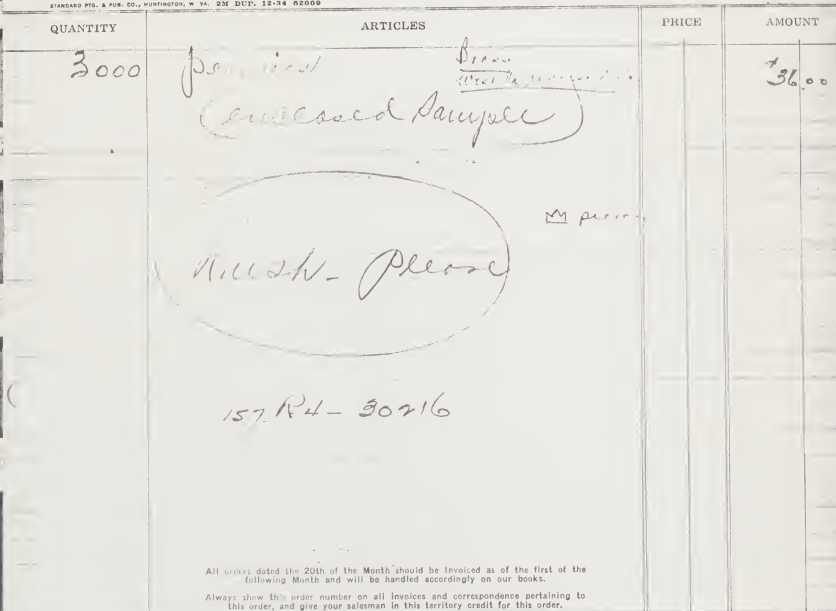 STANDARD PTG. & PUB. CO., HUNTINGTON, W VA. 2M DUP. 12-34 62009
QUANTITY ARTICLES PRICE AMOUNT
3000 $36.00
(enclosed Sample)
Rush - Please
157 R4 - 30216
All orders dated the 20th of the Month should be Invoiced as of the first of the
following Month and will be handled accordingly on our books.
Always show this order number on all invoices and correspondence pertaining to
this order, and give your salesman in this territory credit for this order.